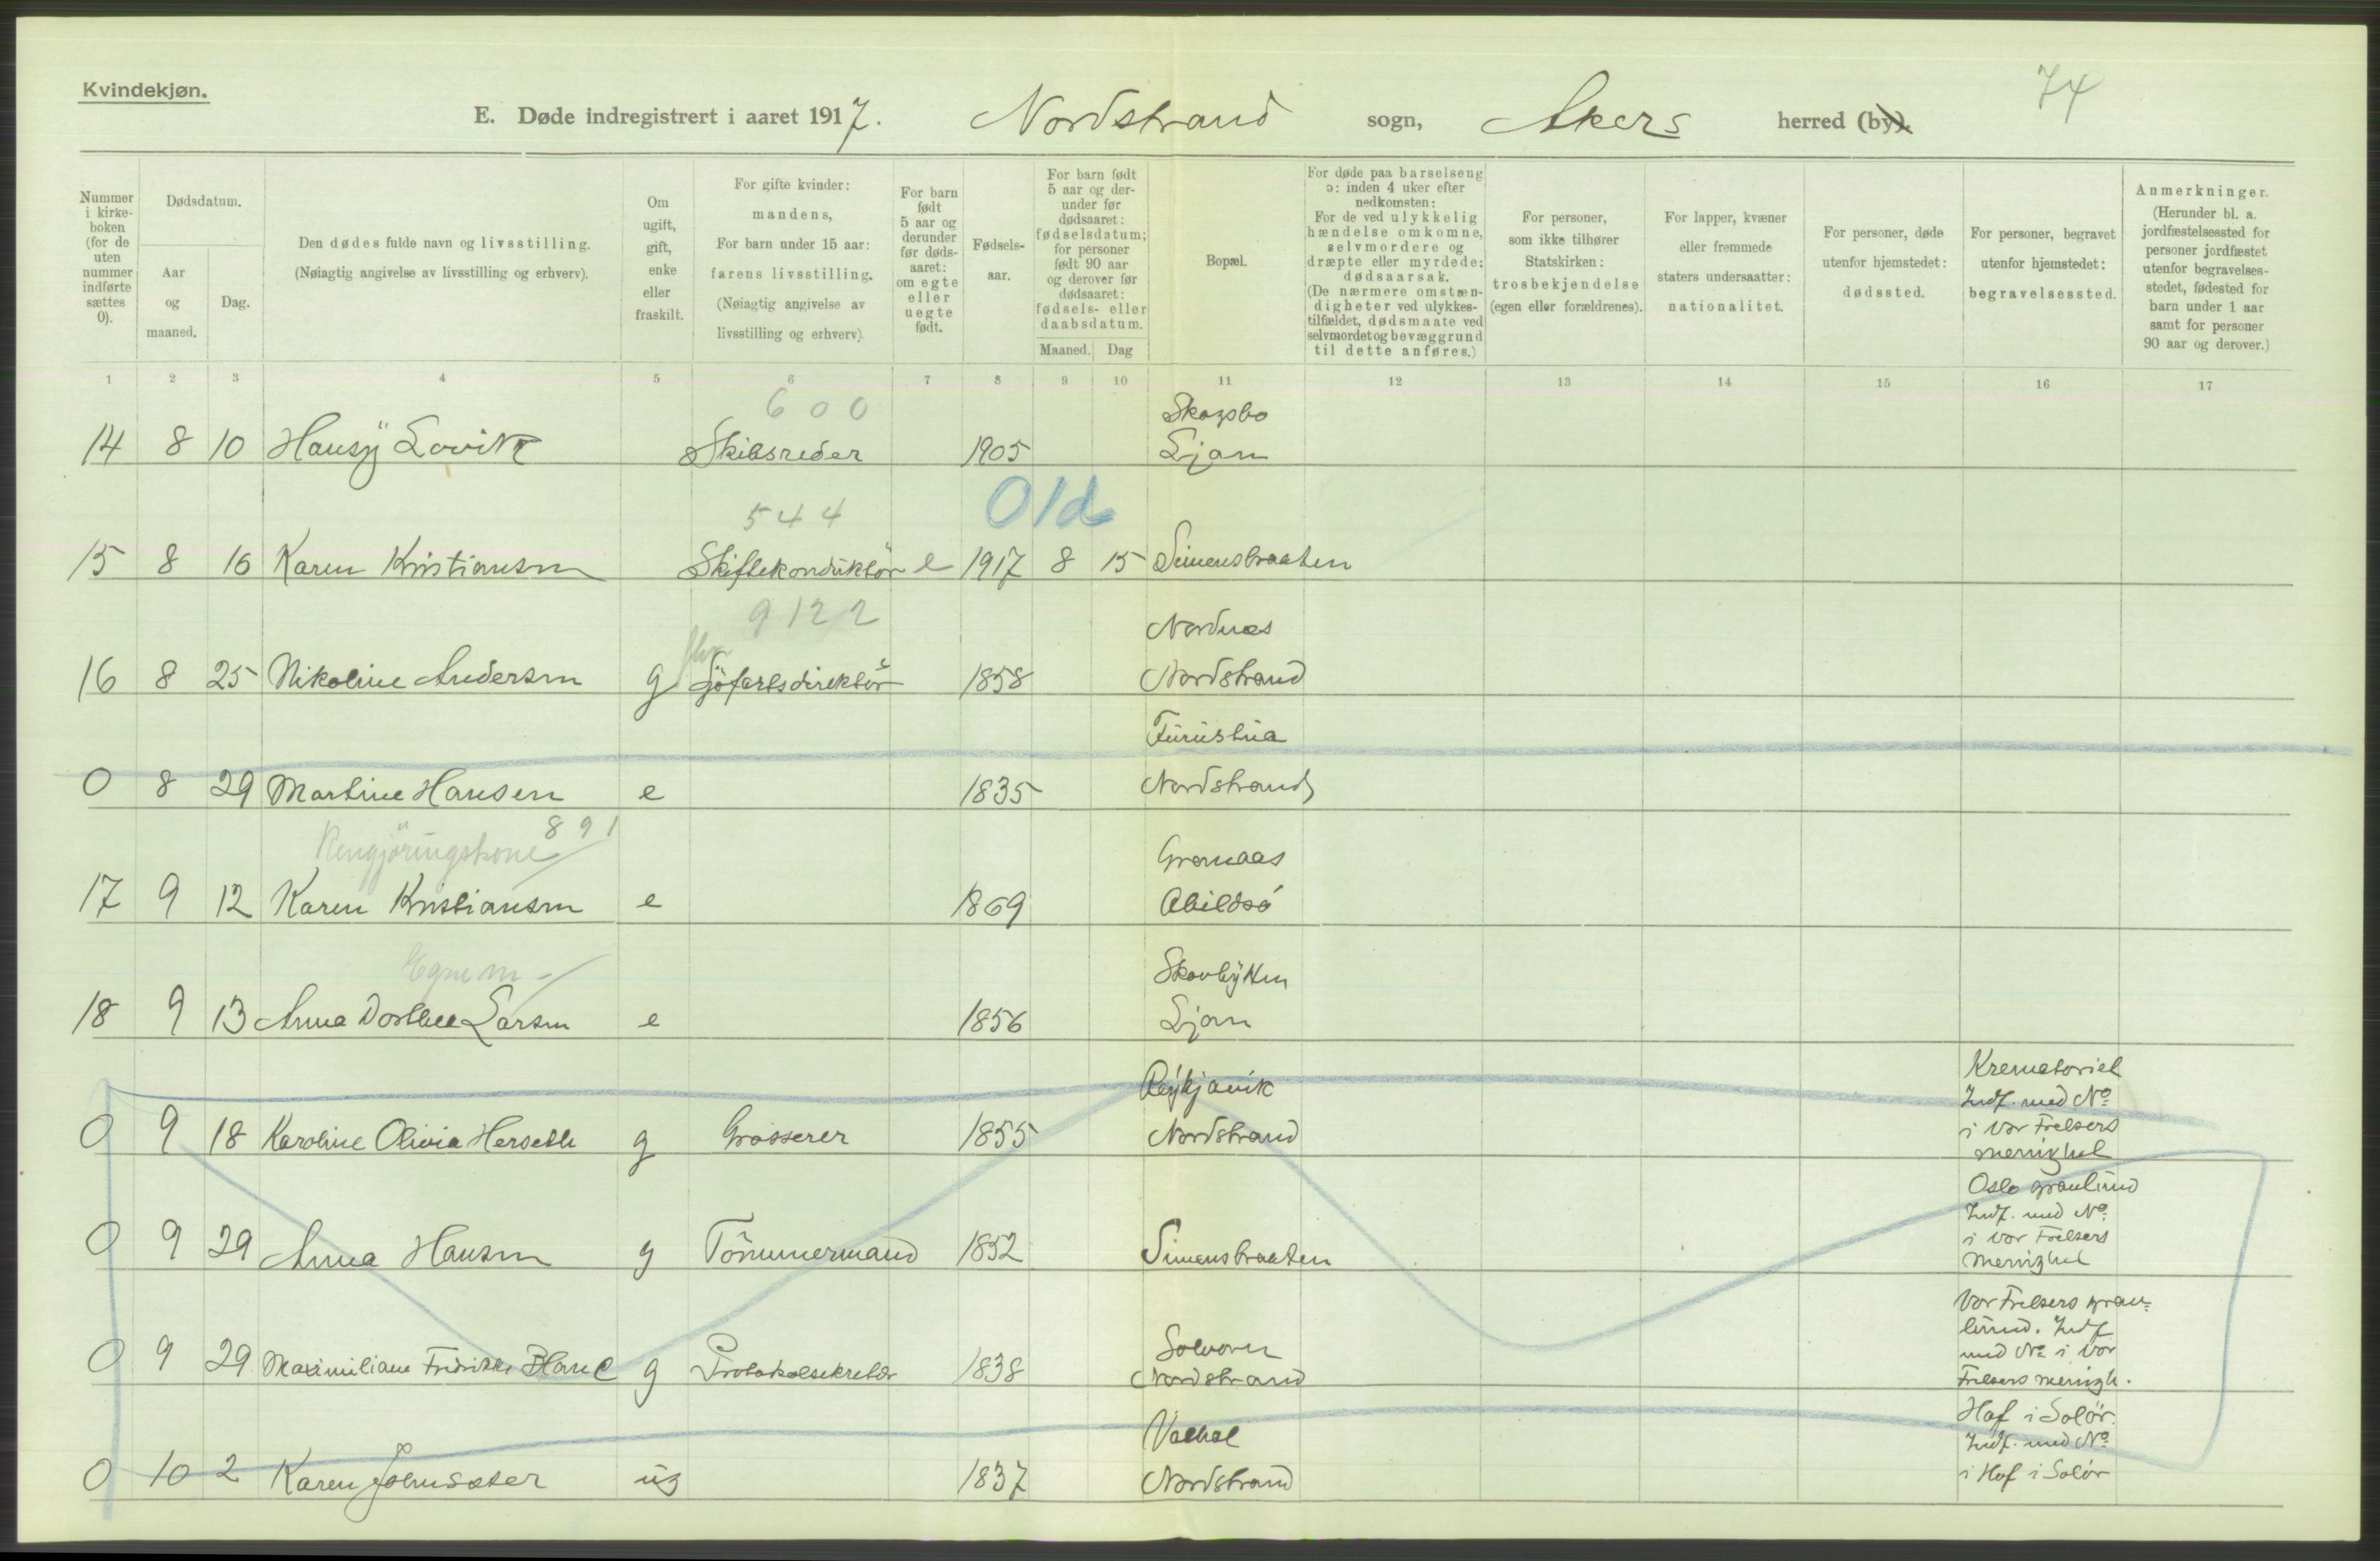 Kvindekjøn.
74
E. Døde indregistrert i aaret 1917. Nordstrand sogn, Akers herred (by).
Nummer i kirke-boken (for de uten nummer indførte sættes 0).
Dødsdatum.
Aar og maaned.
Dag.
Den dødes fulde navn og livsstilling.
(Nøiagtig angivelse av livsstilling og erhverv).
Om ugift, gift, enke eller fraskilt.
For gifte kvinder: mandens,
For barn under 15 aar: farens livsstilling.
(Nøiagtig angivelse av livsstilling og erhverv)
For barn født 5 aar og derunder før døds-aaret: om egte eller uegte født.
Fødsels-aar.
For barn født 5 aar og der-under før dødsaaret: fødselsdatum; for personer født 90 aar og derover før dødsaaret: fødsels- eller daabsdatum.
Maaned. Dag
Bopæl.
For døde paa barselseng ɔ: inden 4 uker efter nedkomsten:
For de ved ulykkelig hændelse omkomne, selvmordere og dræpte eller myrdede: dødsaarsak.
(De nærmere omstæn-digheter ved ulykkes-tilfældet, dødsmaate ved selvmordet og bevæggrund til dette anføres.)
For personer, som ikke tilhører Statskirken: trosbekjendelse (egen eller forældrenes).
For lapper, kvæner eller fremmede staters undersaatter: nationalitet.
For personer, døde utenfor hjemstedet: dødssted.
For personer, begravet utenfor hjemstedet: begravelsessted.
Anmerkninger.
(Herunder bl. a. jordfæstelsessted for personer jordfæstet utenfor begravelses-stedet, fødested for barn under 1 aar samt for personer 90 aar og derover.)
1 2 3 4 5 6 7 8 9 10 11 12 13 14 15 16 17
600 Skogsbo
14 8 10 Hansy Lovik Skibsreder 1905 Ljan
544 Old
15 8 16 Karen Kristiansen Skiftekonduktör e 1917 8 15 Simensbraaten
9122 Nordnes
16 8 25 Nikoline Andersen g Sjöfartsdirektör 1858 Nordstrand
Furustua
0 8 29 Martine Hansen e 1835 Nordstrand
Rengjöringskone 891 Grønaas
17 9 12 Karen Kristiansen e 1869 Abildsö
Egne m - Skovhytten
18 9 13 Anna Dorthea Larsen e 1856 Ljan
Reykjavik Krematoriet
Indf. med No
0 9 18 Karoline Olivia Herseth g Grosserer 1855 Nordstrand i Vor Frelsers
menighet
Oslo gravlund
Indf. med No
i Vor Frelsers
0 9 29 Anna Hansen g Tömmermand 1852 Simensbraaten menighet
Vor Frelsers grav-
lund. Indf
Solvoren med No i Vor
0 9 29 Maximiliane Fredrikke g Protokolsekretær 1838 Nordstrand Frelsers menigh.
Valhal Hof i Solör.
Indf. med No
0 10 2 Karen Johnsæter ug 1837 Nordstrand i Hof i Solör